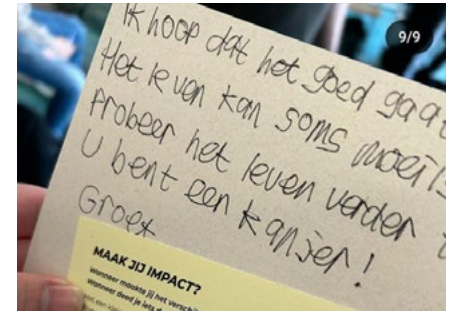 9/9
Ik hoop dat het goed gaat
Het leven kan soms
Probeer het leven verder
U bent een kanjer!
Groet
MAAK JIJ IMPACT?
Wanneer maakte jij het verschil
Wanneer deed je iets